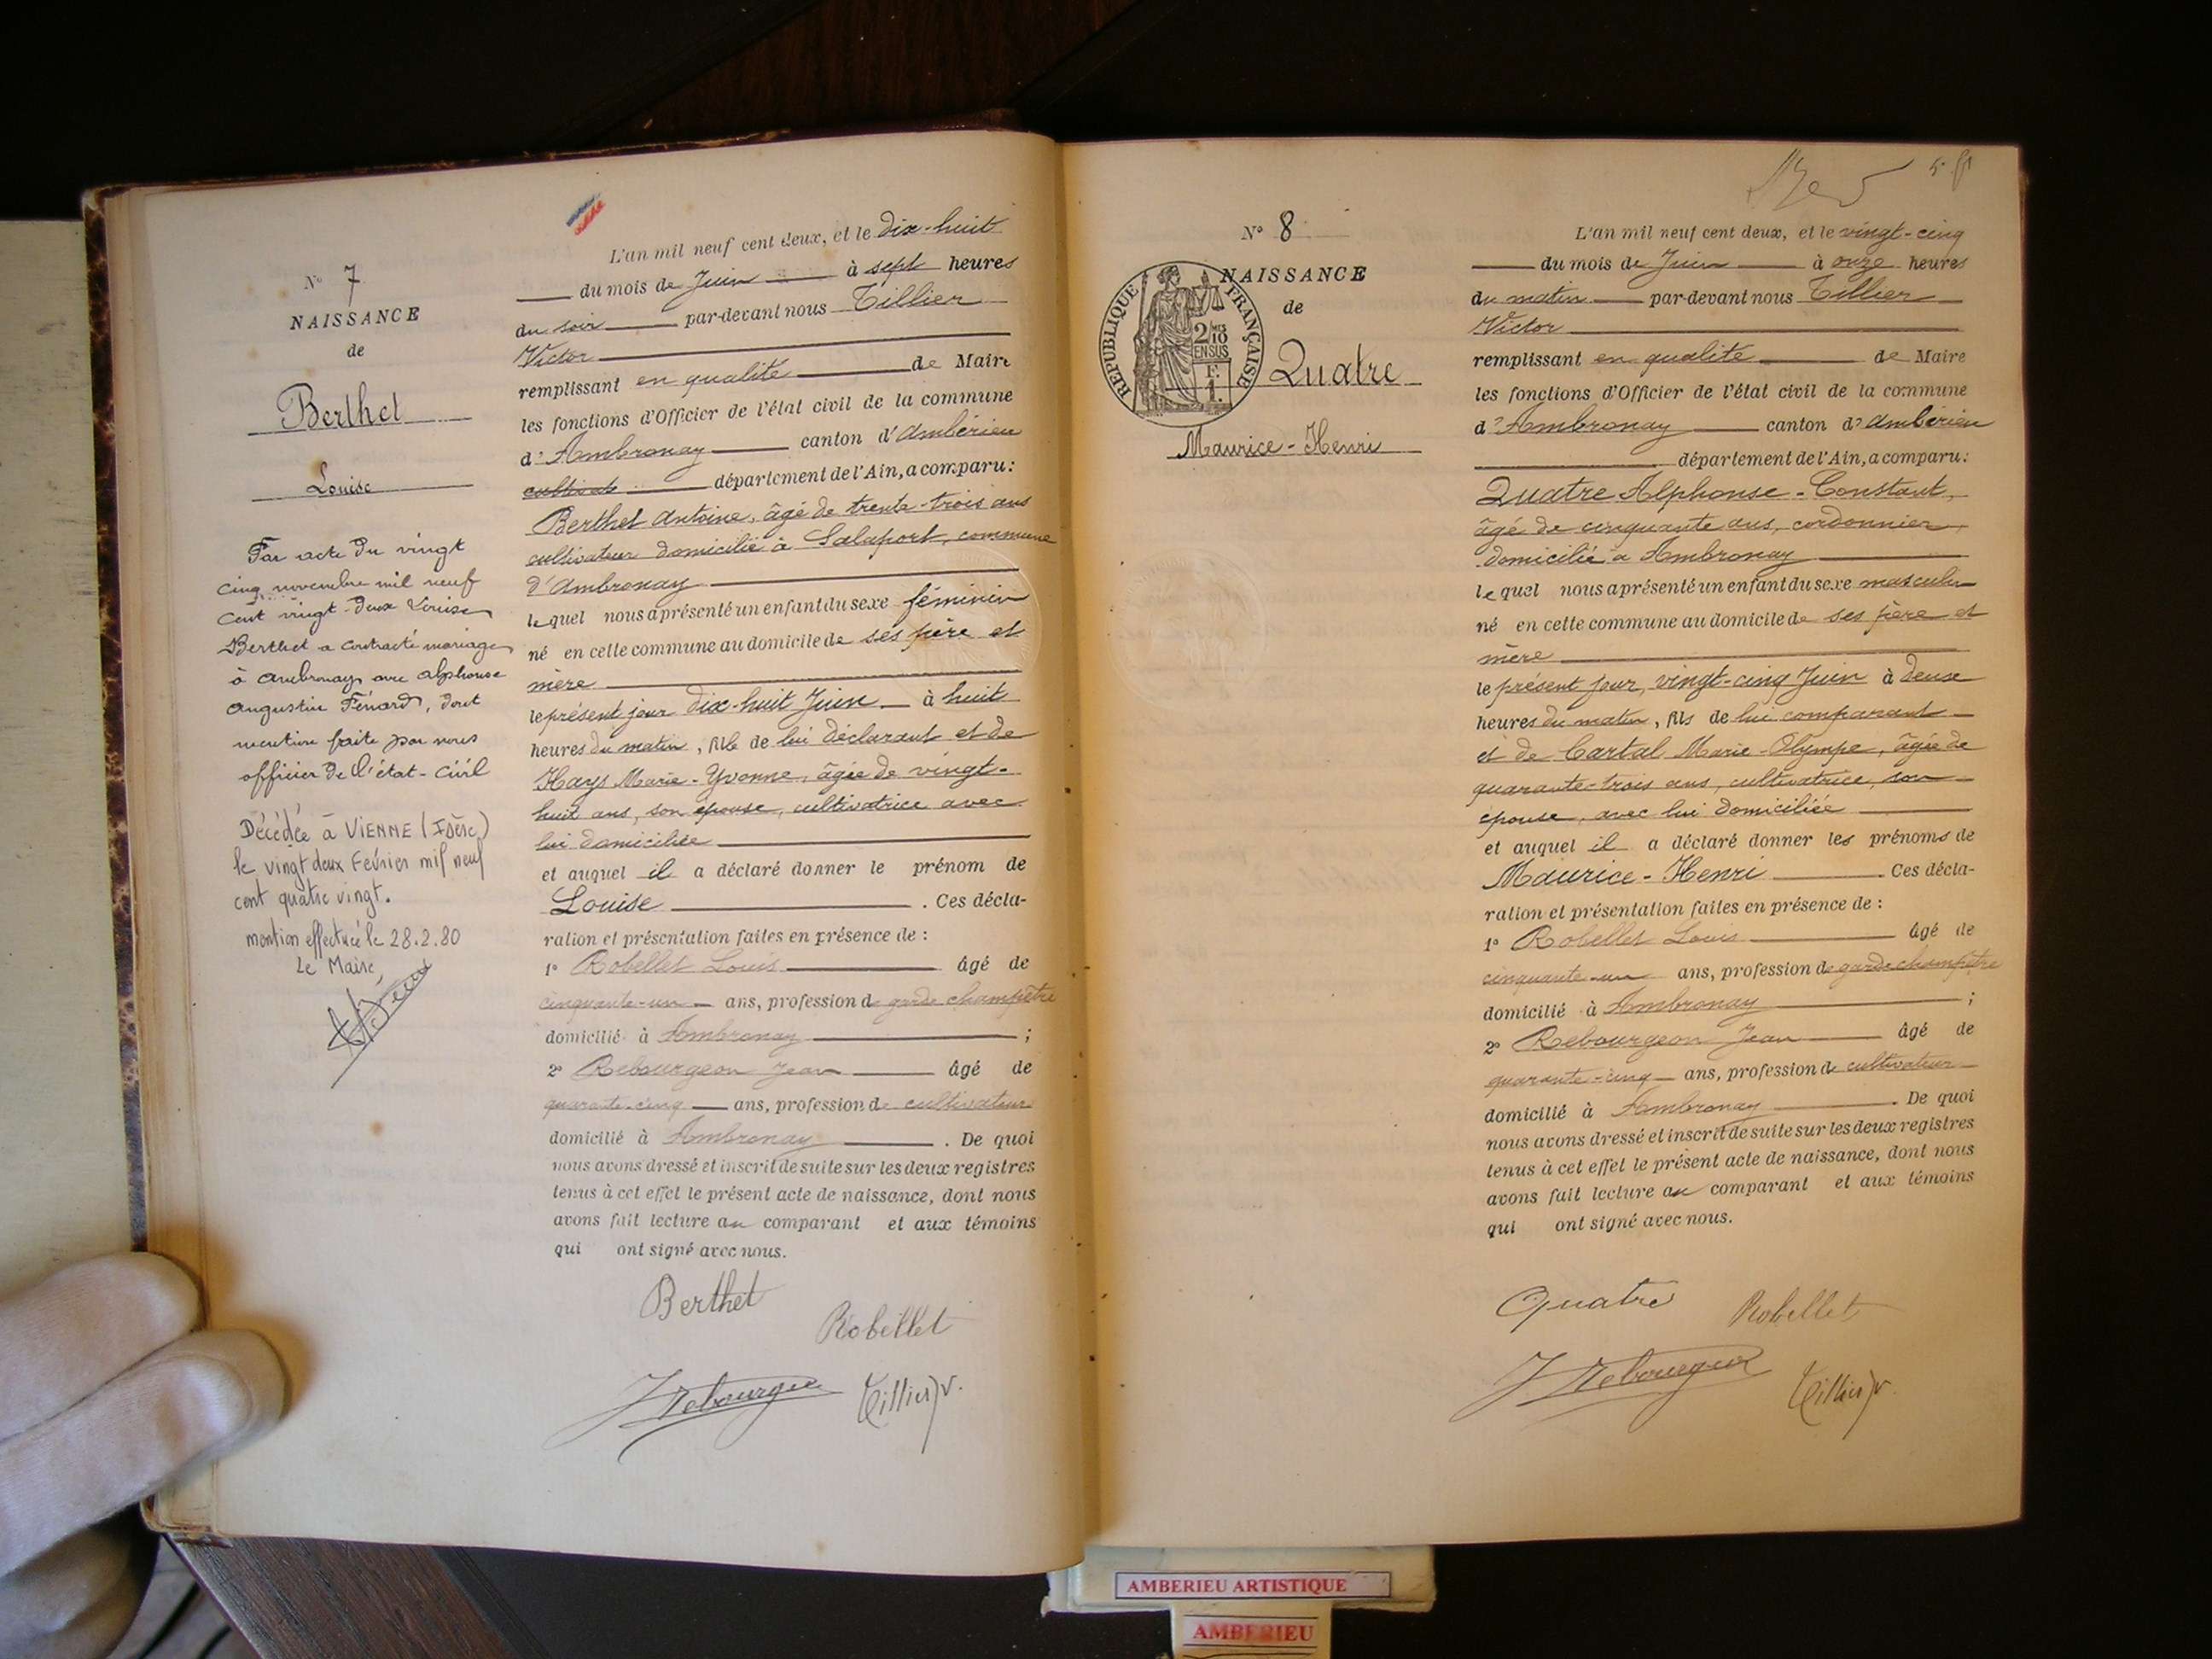 N° 7
NAISSANCE
de
Berthet
Louise
Par acte du vingt
cinq novembre mil neuf
cent vingt-deux Louise
Berthet a contracté mariage
à Ambronay avec Alphonse
Augustin Fénard, dont
mention faite par nous
officier de l'état-civil
Décédée à VIENNE (Isère)
le vingt deux Février mil neuf
cent quatre vingt.
mention effectuée le 28.2.80
Le Maire,
L'an mil neuf cent deux, et le dix-huit
du mois de Juin à sept heures
du soir par-devant nous Tillier
Victor
remplissant en qualité de Maire
les fonctions d'Officier de l'état civil de la commune
d'Ambronay canton d'Ambérieu
département de l'Ain, a comparu:
Berthet Antoine, âgé de trente-trois ans
cultivateur domicilié à Salaport, commune
d'Ambronay
lequel nous a présenté un enfant du sexe féminin
né en cette commune au domicile de ses père et
mère
le présent jour dix-huit Juin à huit
heures du matin, fille de lui déclarant et de
Hays Marie-Yvonne, âgée de vingt-
huit ans, son épouse, cultivatrice avec
lui domiciliée
et auquel il a déclaré donner le prénom de
Louise . Ces décla-
ration et présentation faites en présence de :
1° Robellet Louis âgé de
cinquante-un ans, profession de garde champêtre
domicilié à Ambronay ;
2° Rebourgeon Jean âgé de
quarante-cinq ans, profession de cultivateur
domicilié à Ambronay . De quoi
nous avons dressé et inscrit de suite sur les deux registres
tenus à cet effet le présent acte de naissance, dont nous
avons fait lecture au comparant et aux témoins
qui ont signé avec nous.
Berthet
Robellet
J Rebourgeon
Tillier V.
5
N° 8
NAISSANCE
de
RÉPUBLIQUE FRANÇAISE
2/10 EN SUS
F. 1.
Quatre
Maurice-Henri
L'an mil neuf cent deux, et le vingt-cinq
du mois de Juin à onze heures
du matin par-devant nous Tillier
Victor
remplissant en qualité de Maire
les fonctions d'Officier de l'état civil de la commune
d'Ambronay canton d'Ambérieu
département de l'Ain, a comparu:
Quatre Alphonse-Constant,
âgé de cinquante ans, cordonnier,
domicilié à Ambronay
lequel nous a présenté un enfant du sexe masculin
né en cette commune au domicile de ses père et
mère
le présent jour, vingt-cinq Juin à deux
heures du matin, fils de lui comparant
et de Cartal Marie-Olympe, âgée de
quarante-trois ans, cultivatrice, son
épouse, avec lui domiciliée
et auquel il a déclaré donner les prénoms de
Maurice-Henri . Ces décla-
ration et présentation faites en présence de :
1° Robellet Louis âgé de
cinquante-un ans, profession de garde champêtre
domicilié à Ambronay ;
2° Rebourgeon Jean âgé de
quarante-cinq ans, profession de cultivateur
domicilié à Ambronay . De quoi
nous avons dressé et inscrit de suite sur les deux registres
tenus à cet effet le présent acte de naissance, dont nous
avons fait lecture au comparant et aux témoins
qui ont signé avec nous.
Quatre
Robellet
J Rebourgeon
Tillier V
AMBERIEU ARTISTIQUE
AMBERIEU